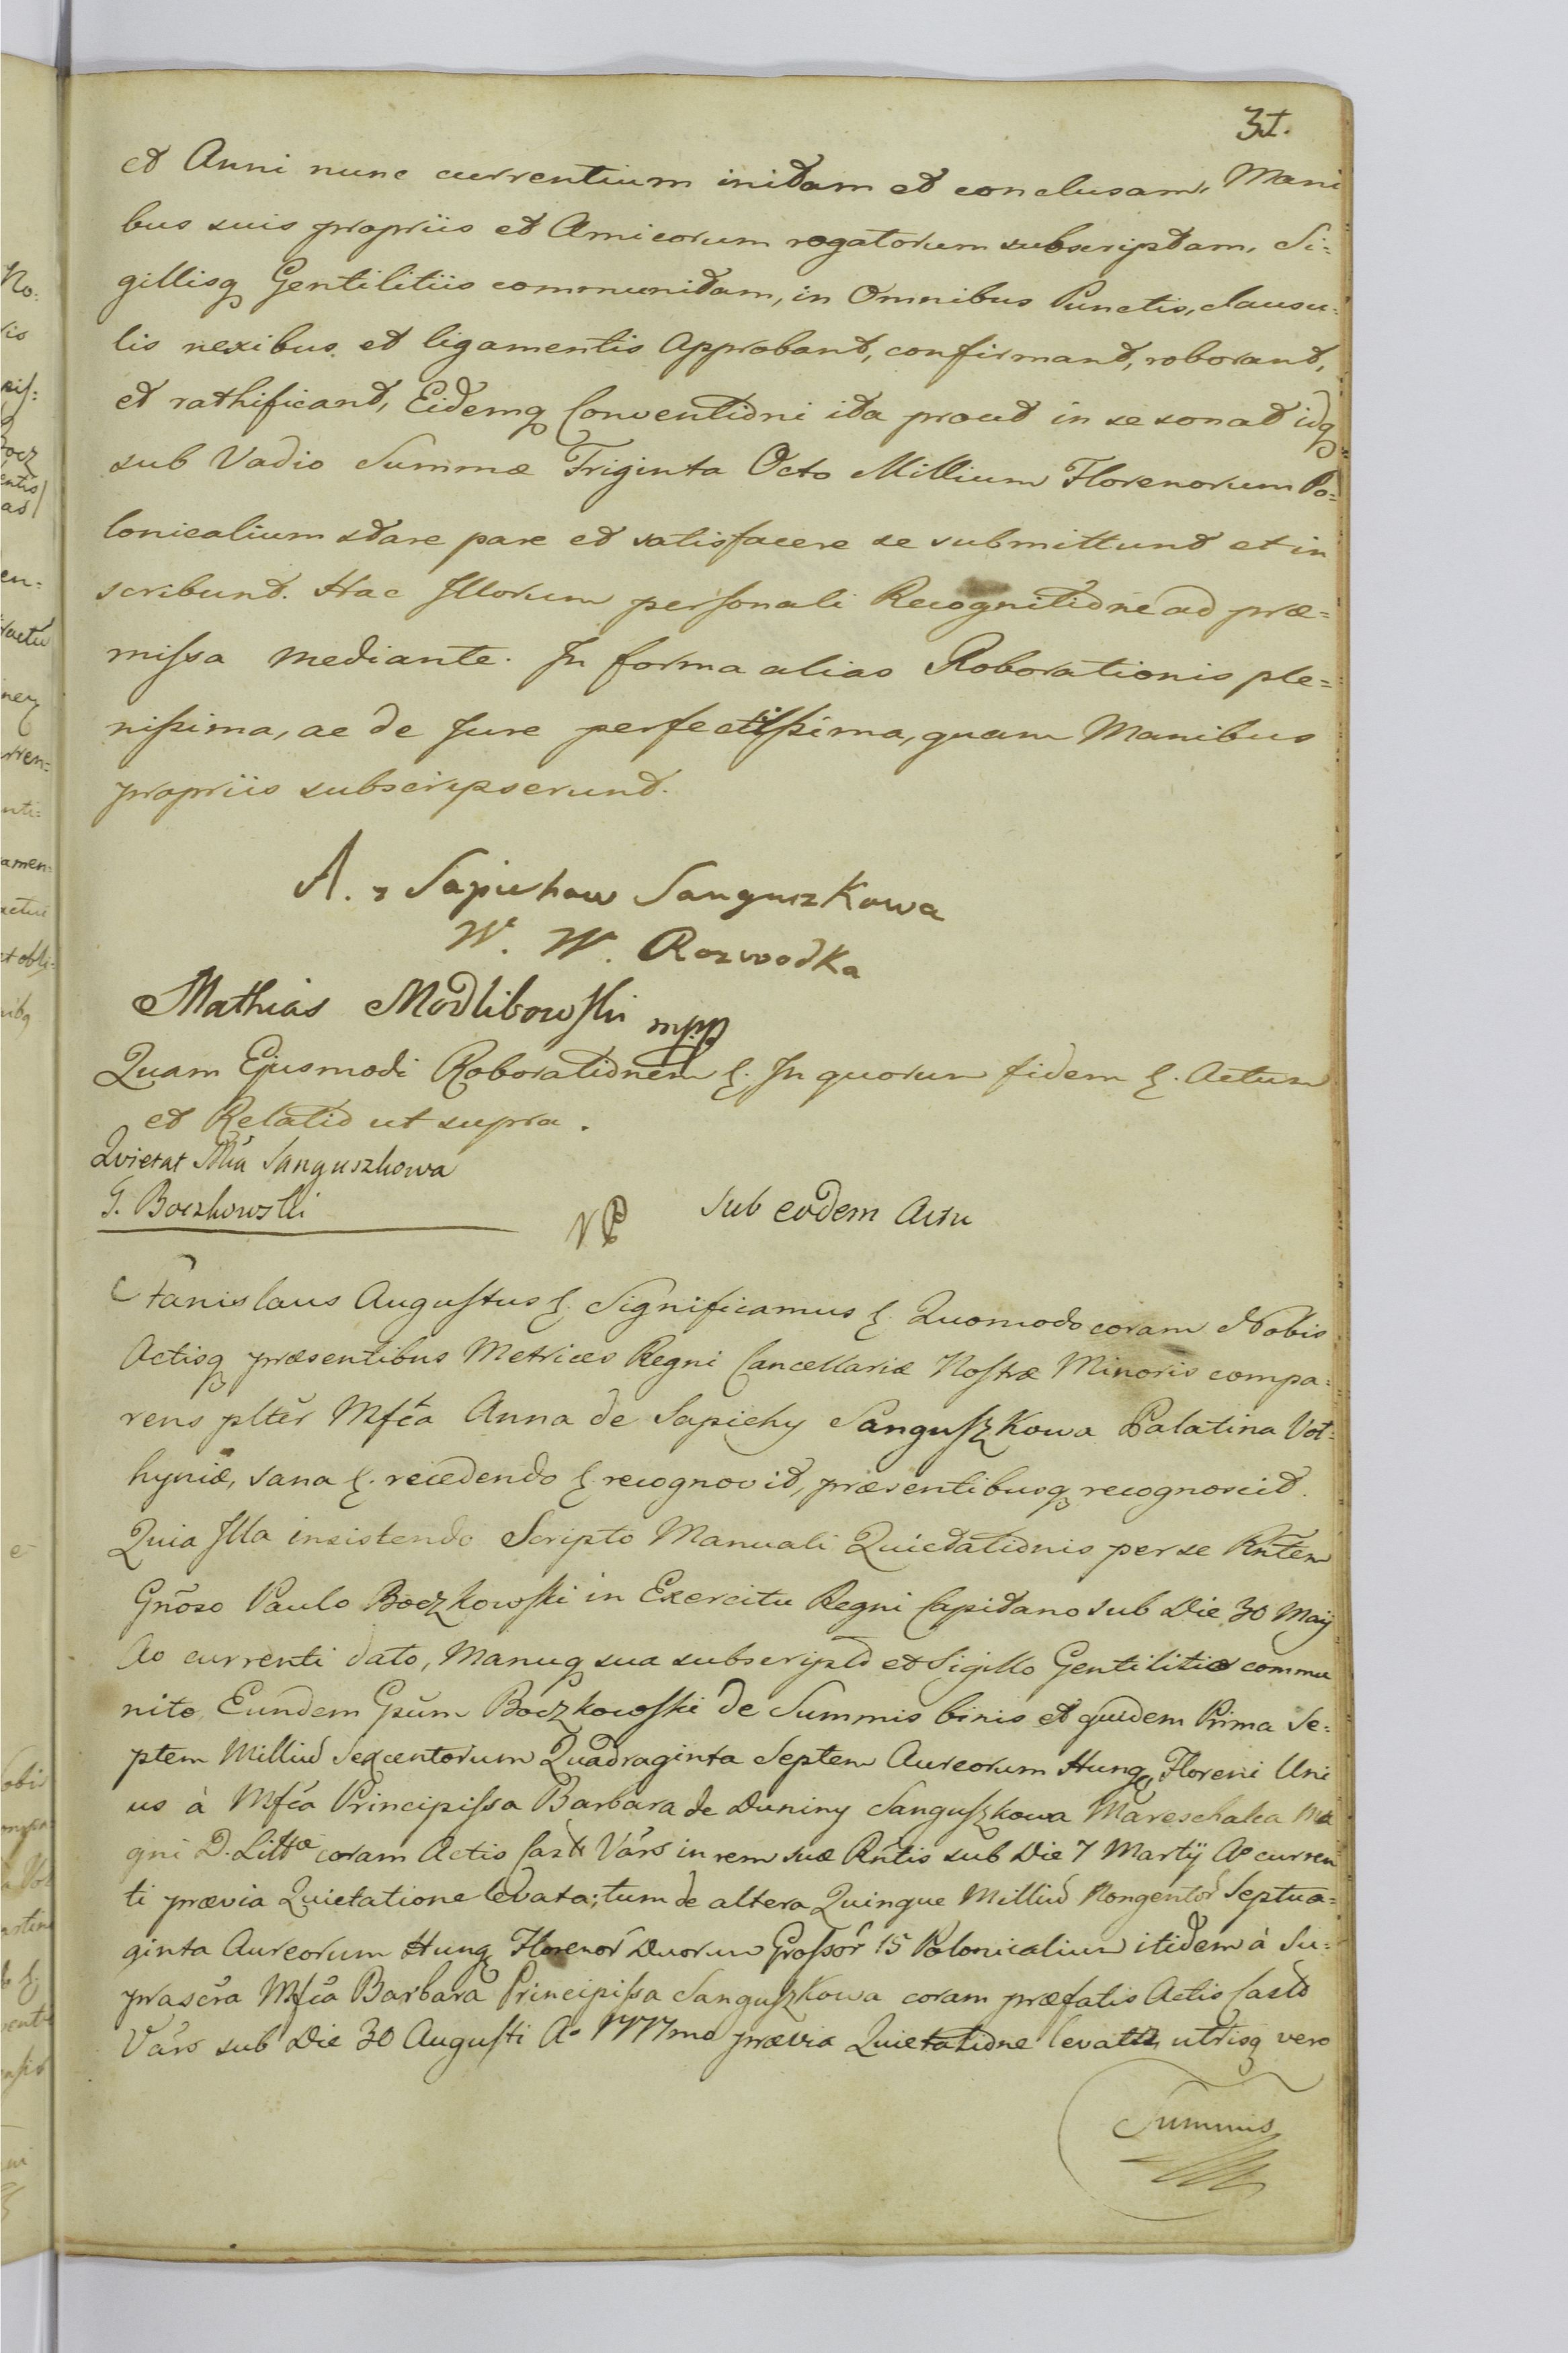 31.
et Anni nunc currentium initam et conclusam, Mani
bus suis propriis et Amicorum rogatorum subscriptam, Si=
gillisq Gentilitiis communitam, in Omnibus Punctis, clausu=
lis nexibus et ligamentis Approbant, confirmant, roborant,
et rathificant, Eidemq Conventioni ita prout in se sonat idq
sub Vadio Summæ Triginta Octo Millium Florenorum Po=
lonicalium stare pare et satisfacere se submittunt et in
scribunt. Hac Illorum personali Recognitione ad præ=
missa mediante. In forma alias Roborationis ple=
nissima, ac de Jure perfectissima, quam Manibus
propriis subscripserunt.
A. z Sapiehow Sanguszkowa
W. W. Rozwodka
Mathias Modlibowski mpp
Quam Ejusmodi Roborationem &. In quorum fidem &. Actum
et Relatio ut supra.
Quietat Mfa Sanguszkowa
G. Boczkowski
Sub eodem Actu
Stanislaus Augustus &. Significamus &. Quomodo coram Nobis
Actisq præsentibus Metrices Regni Cancellariæ Nostræ Minoris compa=
rens plter Mfca Anna de Sapiehy Sanguszkowa Palatina Vol=
hyniæ, sana &. recedendo &. recognovit, præsentibusq recognoscit.
Quia Illa insistendo Scripto Manuali Quietationis per se Rntem
Gnoso Paulo Boczkowski in Exercitu Regni Capitano sub Die 30 Maij
Ao currenti dato, Manuq sua subscripto et Sigillo Gentilitio commu
nito, Eundem Gsum Boczkowski de Summis binis et quidem Prima Se=
ptem Milliu Sexcentorum Quadraginta Septem Aureorum Hung, Floreni Uni
us à Mfca Principissa Barbara de Duniny Sanguszkowa Mareschalca Ma
gni D. Litt coram Actis Castr Vars in rem suæ Rntis sub Die 7 Martij Ao curren
ti prævia Quietatione levata; tum de altera Quingue Milliu Nongentor Septua=
ginta Aureorum Hung Florenor Duorum Grossor 15 Polonicalium itidem à Su=
prascra Mfca Barbara Principissa Sanguszkowa coram præfatis Actis Castr
Vars sub Die 30 Augusti Ao 1777mo prævia Quietatione levatis, utrisq vero
Summis